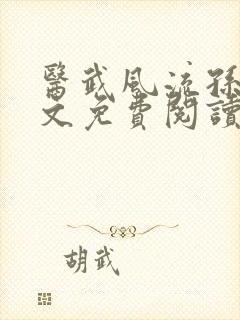 醫武風流孫
文免費閱讀
胡武